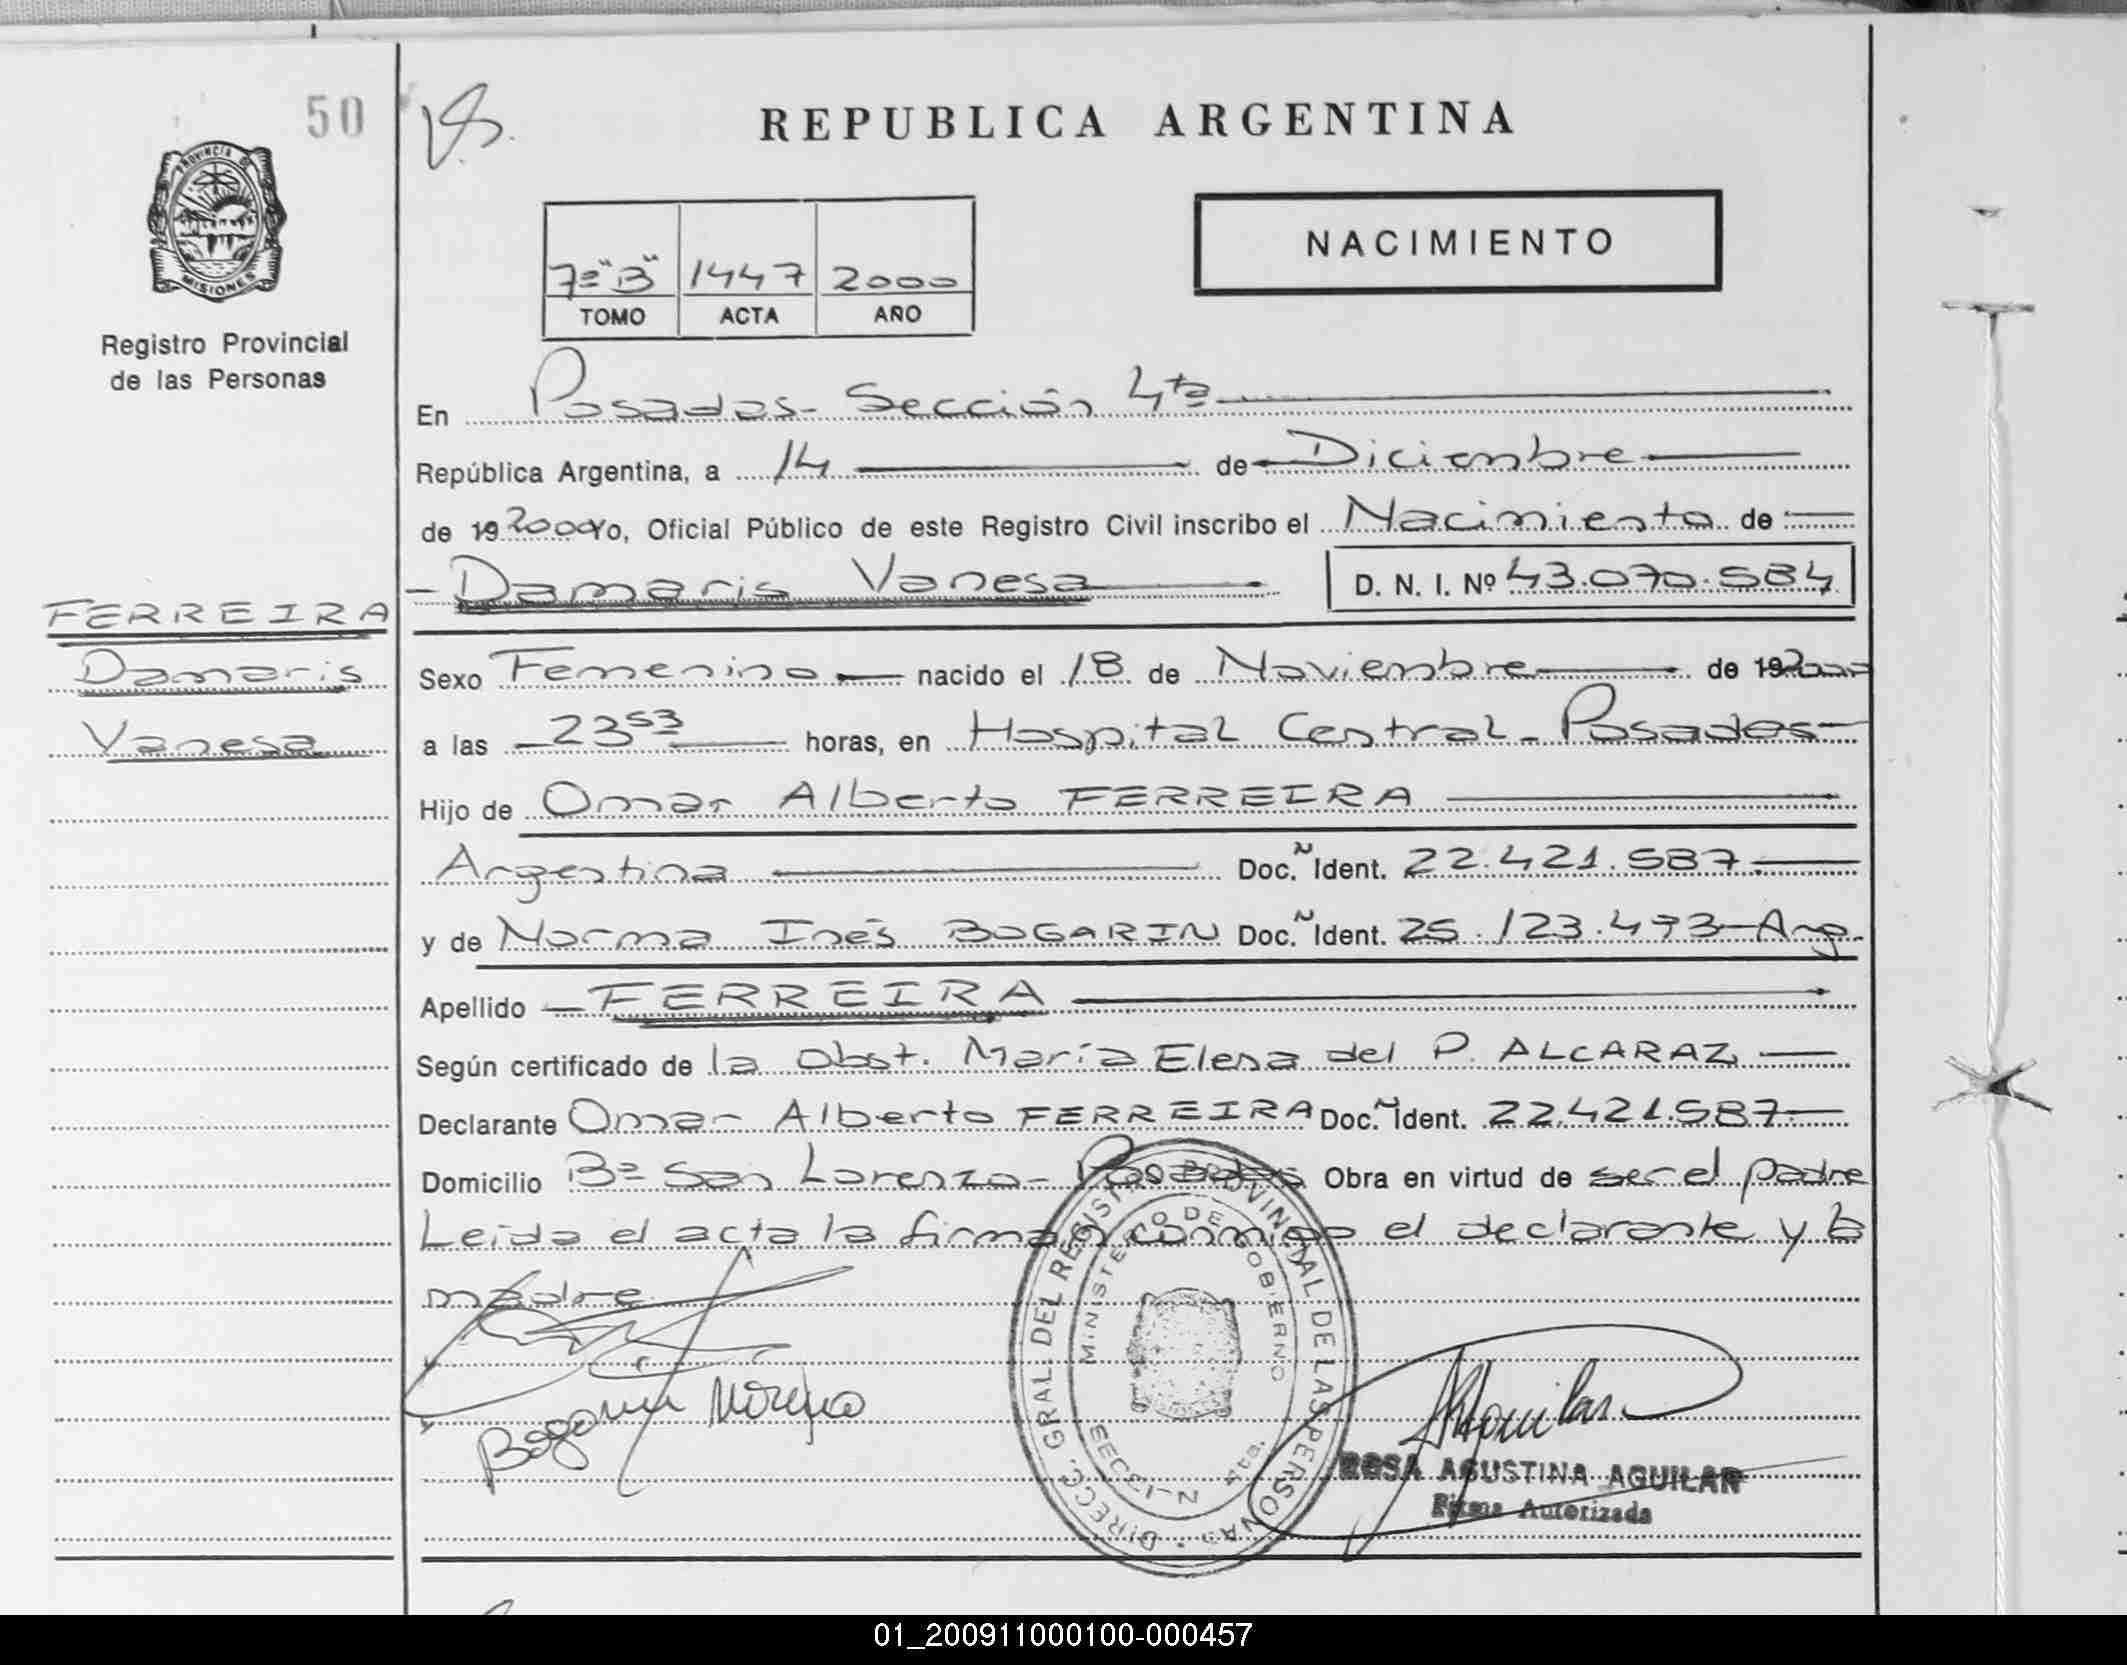 50
REPUBLICA ARGENTINA
PROVINCIA DE
MISIONES
Registro Provincial
de las Personas
NACIMIENTO
7º "B" 1447 2000
TOMO ACTA AÑO
En Posadas - Sección 4ta
República Argentina, a 14 de Diciembre
de 19 2000 Yo, Oficial Público de este Registro Civil inscribo el Nacimiento de
Damaris Vanesa D. N. I. Nº 43.070.584
FERREIRA
Damaris
Vanesa
Sexo Femenino nacido el 18 de Noviembre de 19 2000
a las 23 53 horas, en Hospital Central - Posadas
Hijo de Omar Alberto FERREIRA
Argentina Doc. N Ident. 22.421.587
y de Norma Inés BOGARIN Doc. N Ident. 25.123.473 - Arg.
Apellido FERREIRA
Según certificado de la Obst. María Elena del P. ALCARAZ
Declarante Omar Alberto FERREIRA Doc. N Ident. 22.421.587
Domicilio Bº San Lorenzo - Posadas Obra en virtud de ser el padre
Leida el acta la firman conmigo el declarante y la
madre
DIRECC. GRAL. DEL REGISTRO PROVINCIAL DE LAS PERSONAS
MINISTERIO DE GOBIERNO
Bogarin
Aguilar
ROSA AGUSTINA AGUILAR
Firma Autorizada
01_200911000100-000457